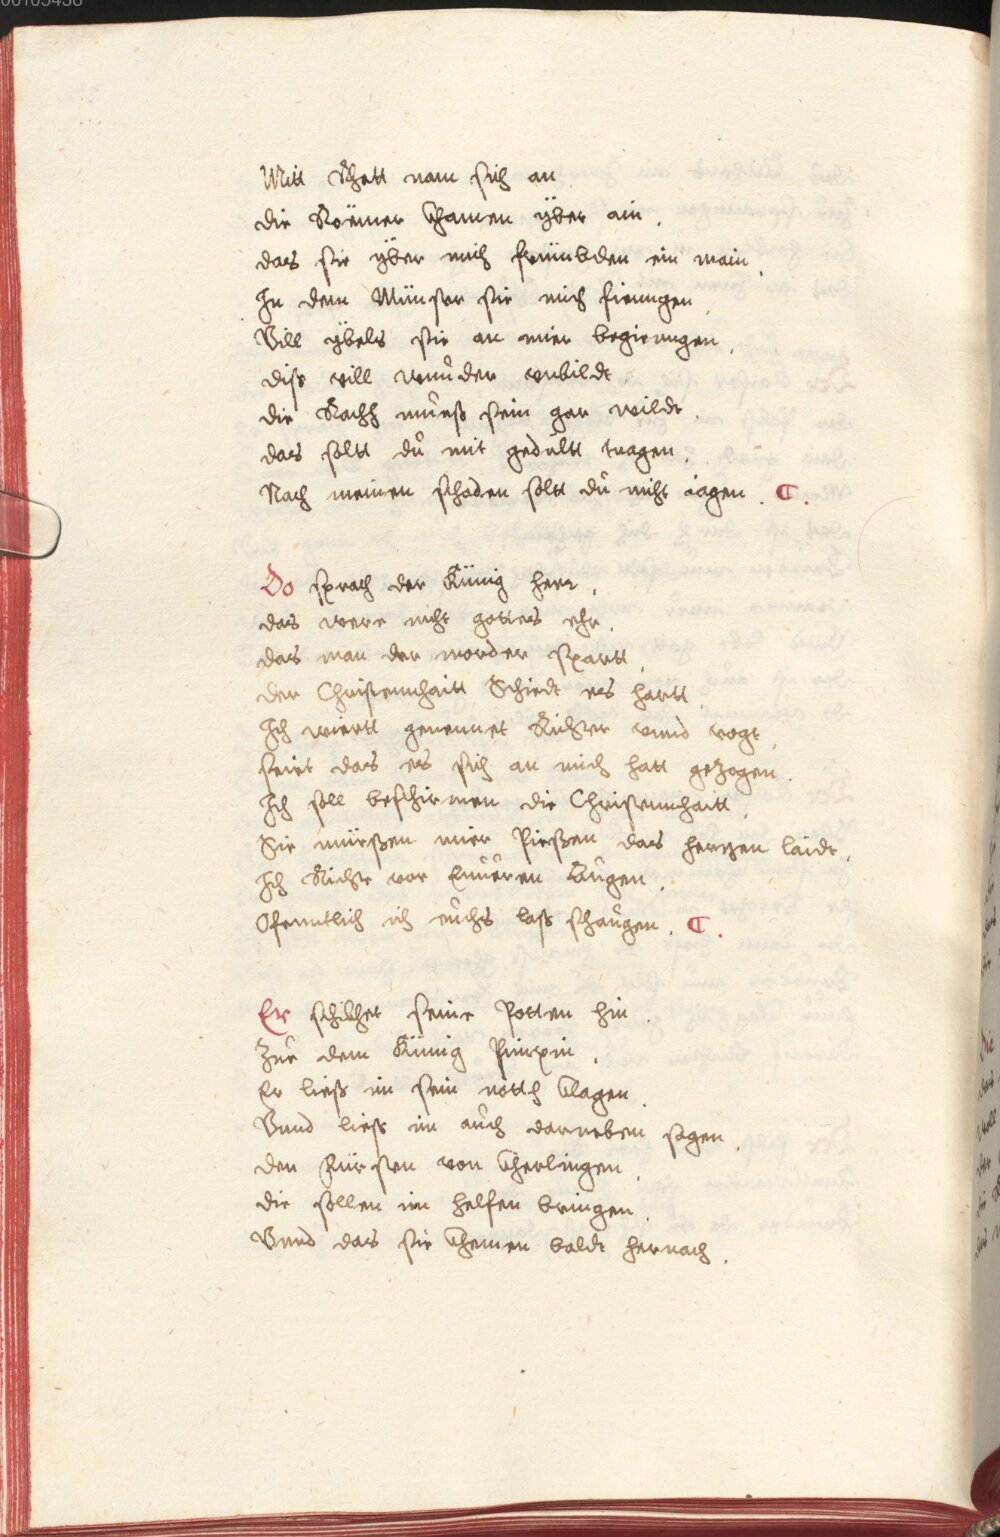 00105438
Mitt Rhatt nam sich an
die Roëmer Khamen ÿber ain.
das sie ÿber mich freündden ein main.
In dem Münster sie mich fienngen.
Vill ÿbels sie an mier begienngen.
diß vill wunder vnbildt
die Rachh mueß sein gar wildt.
das soltt dú mit gedultt tragen.
Nach meinen schaden soltt dú nicht iagen. C.
Do sprach der Künig herr.
das were nicht gottes ehr.
das man der morder spartt.
der Christennhaitt Schiedt es hartt.
Ich wiertt genennet Richter vnnd vogt.
seit das es sich an mich hatt gezogen.
Ich soll beschirmen die Christennhaitt.
Sie müeßen mier Pießen das hertzen laidt.
Ich Richte vor Eúúeren Aúgen.
Ofenntlich ich eúchs laß schaúgen. C.
Er schickhet seine Potten hin.
Zúe dem Künig Pinpin.
Er ließ im sein nötth Klagen.
Vnnd ließ im aúch darneben sagen.
den Fürsten von Kherlingen.
die sollen im helfen bringen.
Vnnd das sie Khemen baldt hernach.